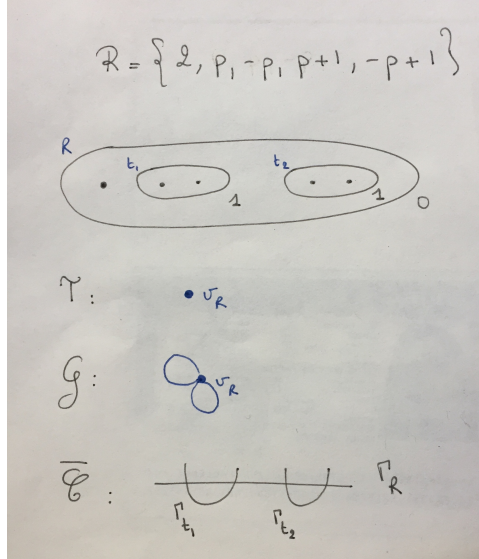 R = { 2, p, -p, p+1, -p+1 }
R
t₁
t₂
1
1
0
T : v_R
G : v_R
C̅ : Γ_R
Γ_t₁ Γ_t₂